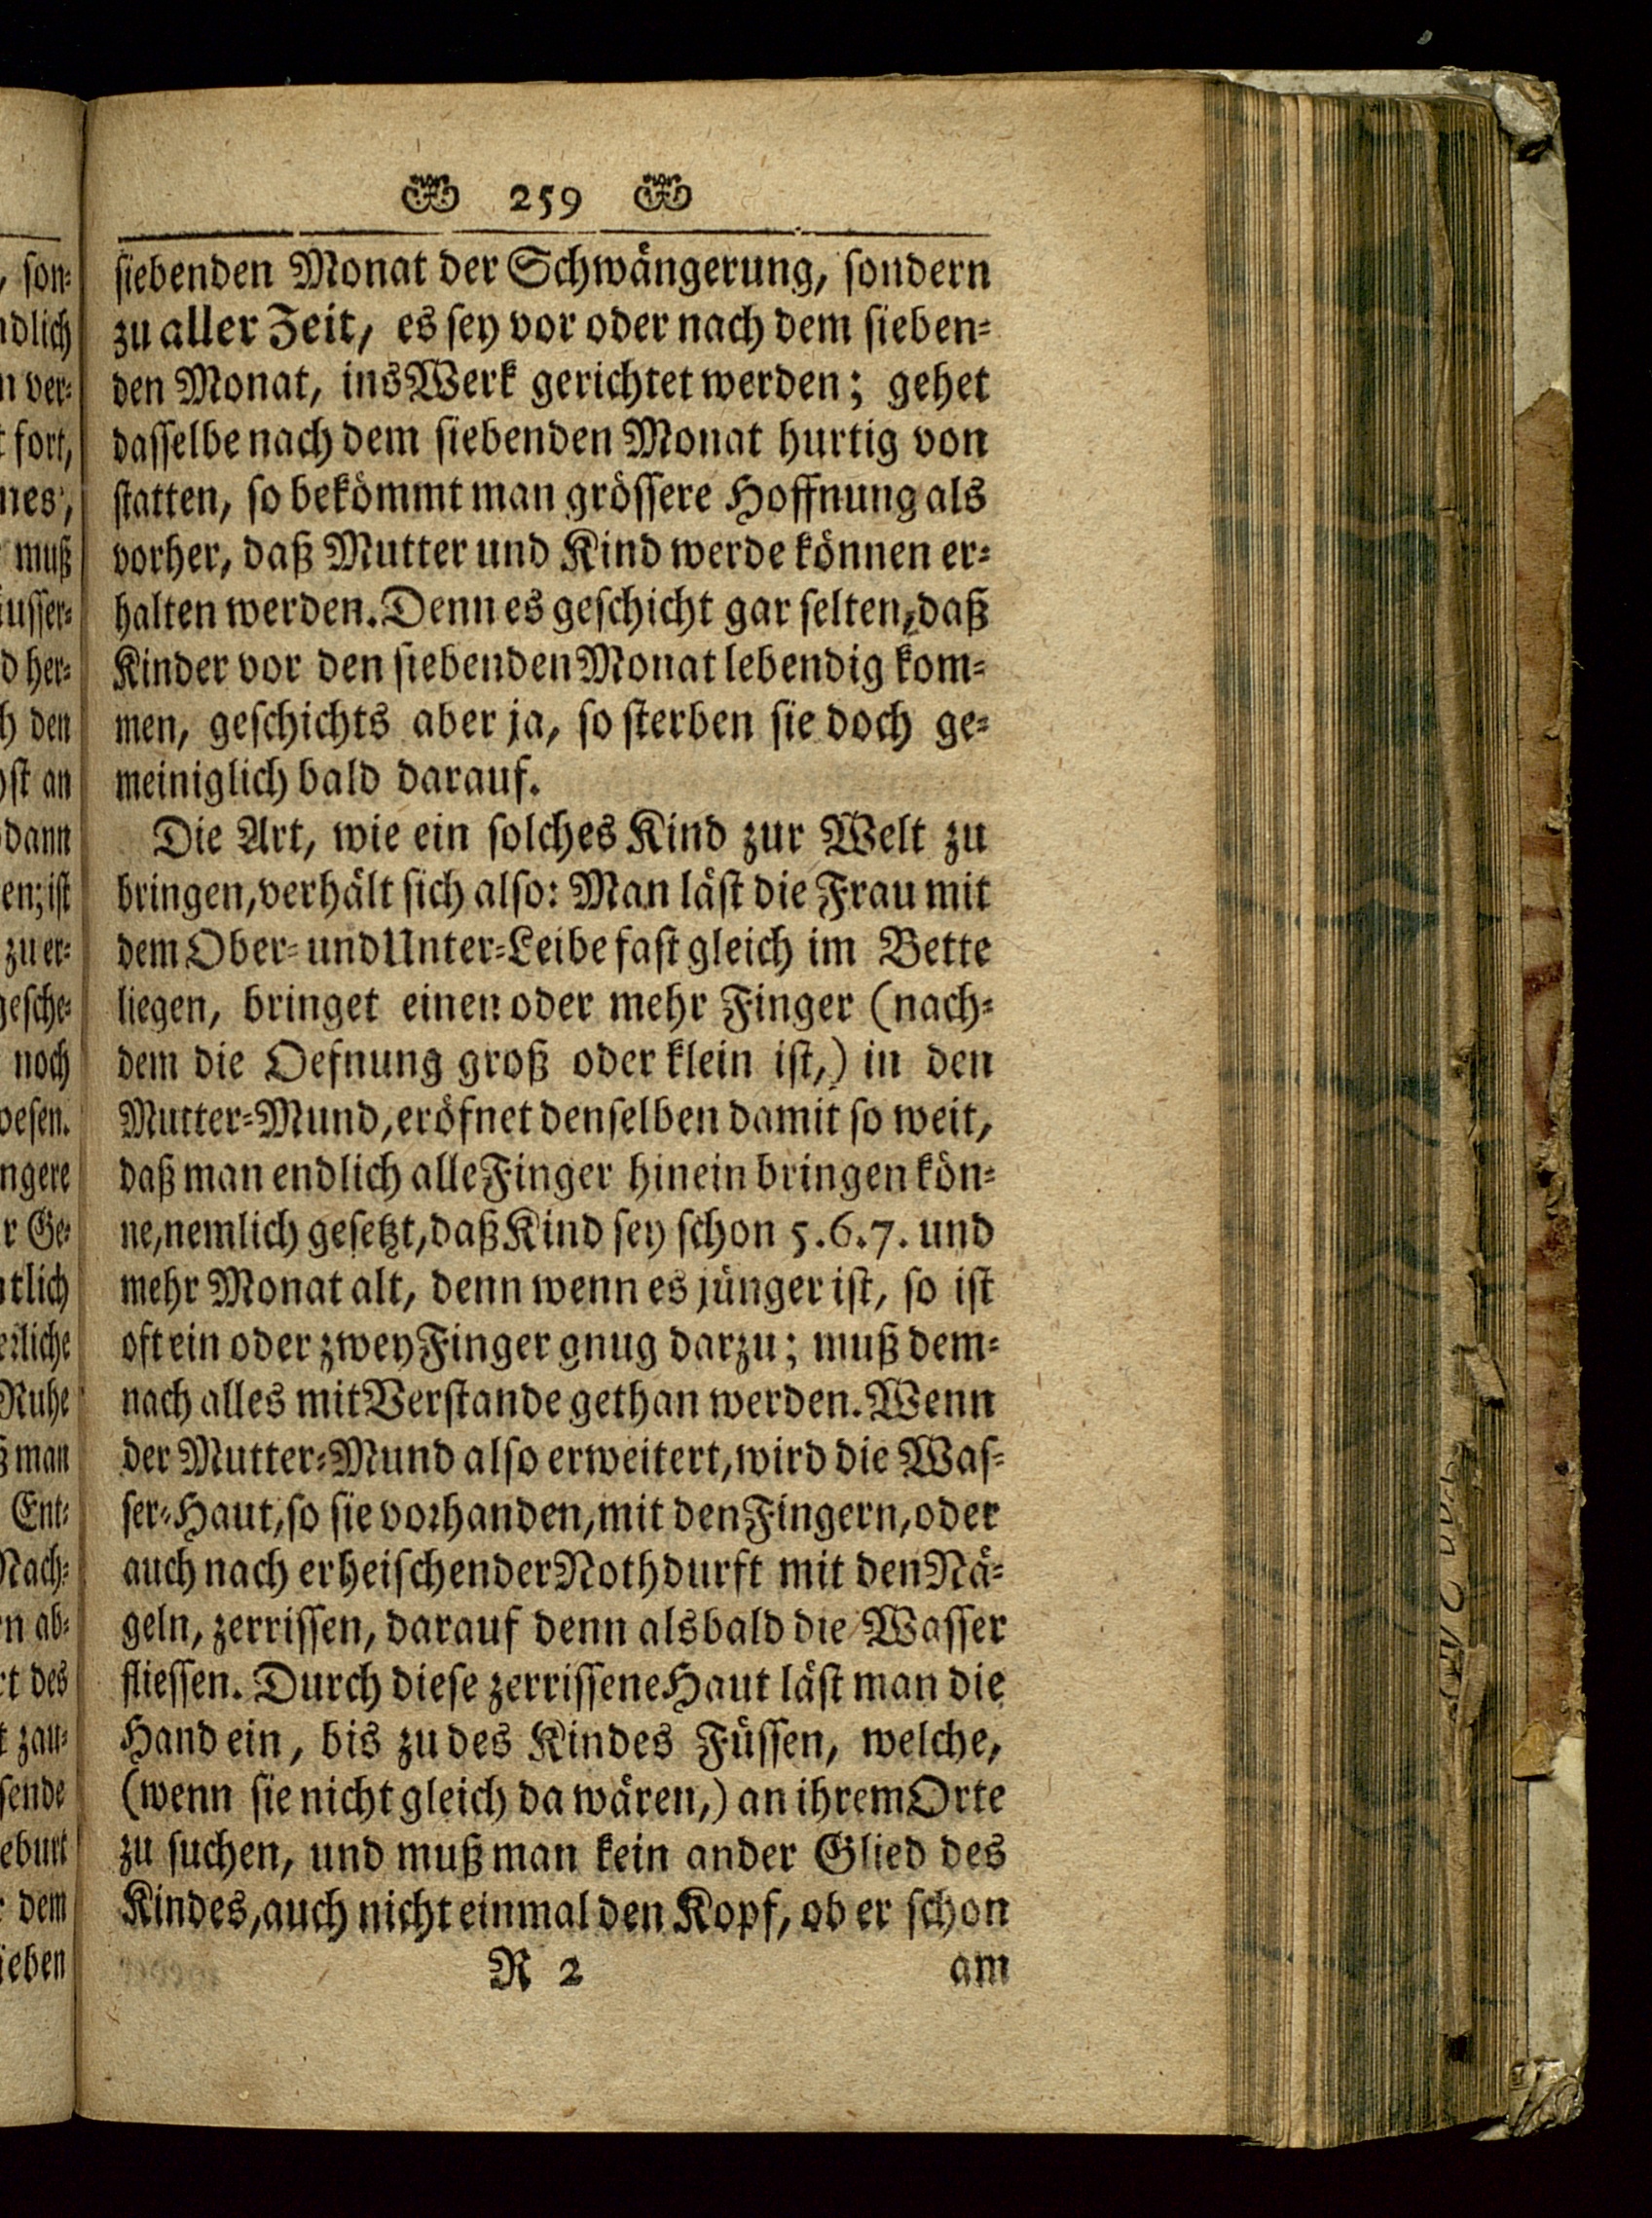 259
siebenden Monat der Schwängerung, sondern
zu aller Zeit, es sey vor oder nach dem sieben-
den Monat, ins Werk gerichtet werden; gehet
dasselbe nach dem siebenden Monat hurtig von
statten, so bekömmt man grössere Hoffnung als
vorher, daß Mutter und Kind werde können er-
halten werden. Denn es geschicht gar selten, daß
Kinder vor den siebenden Monat lebendig kom-
men, geschichts aber ja, so sterben sie doch ge-
meiniglich bald darauf.
Die Art, wie ein solches Kind zur Welt zu
bringen, verhält sich also: Man läst die Frau mit
dem Ober- und Unter-Leibe fast gleich im Bette
liegen, bringet einen oder mehr Finger (nach-
dem die Oefnung groß oder klein ist,) in den
Mutter-Mund, eröfnet denselben damit so weit,
daß man endlich alle Finger hinein bringen kön-
ne, nemlich gesetzt, daß Kind sey schon 5. 6. 7. und
mehr Monat alt, denn wenn es jünger ist, so ist
oft ein oder zwey Finger gnug darzu; muß dem-
nach alles mit Verstande gethan werden. Wenn
der Mutter-Mund also erweitert, wird die Was-
ser-Haut, so sie vorhanden, mit den Fingern, oder
auch nach erheischender Nothdurft mit den Nä-
geln, zerrissen, darauf denn alsbald die Wasser
fliessen. Durch diese zerrissene Haut läst man die
Hand ein, bis zu des Kindes Füssen, welche,
(wenn sie nicht gleich da wären,) an ihrem Orte
zu suchen, und muß man kein ander Glied des
Kindes, auch nicht einmal den Kopf, ob er schon
R 2 am